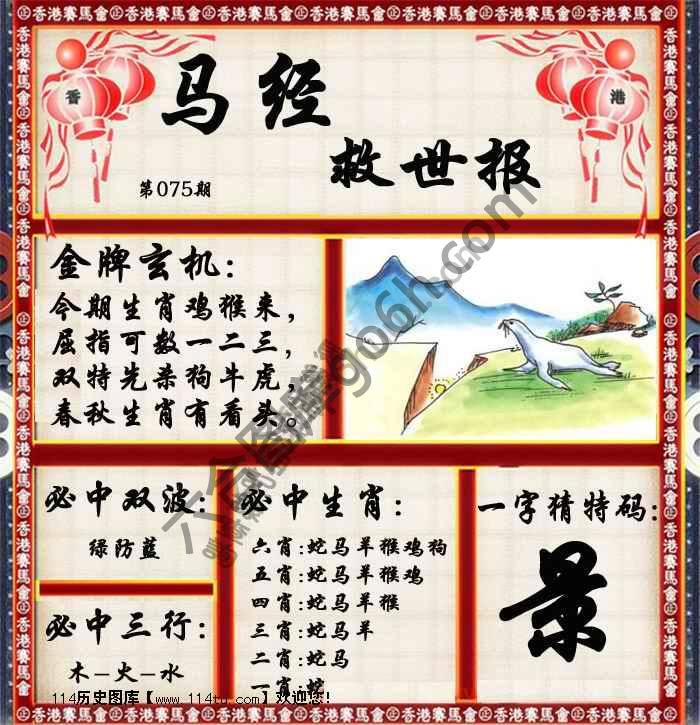 香港賽馬會
香
港
马经
救世报
第075期
金牌玄机:
今期生肖鸡猴来,
屈指可数一二三,
双特先杀狗牛虎,
春秋生肖有看头。
必中双波:
绿防蓝
必中三行:
木–火–水
必中生肖:
六肖:蛇马羊猴鸡狗
五肖:蛇马羊猴鸡
四肖:蛇马羊猴
三肖:蛇马羊
二肖:蛇马
一肖:蛇
一字猜特码:
景
114历史图库【www.114tu.com】欢迎您!